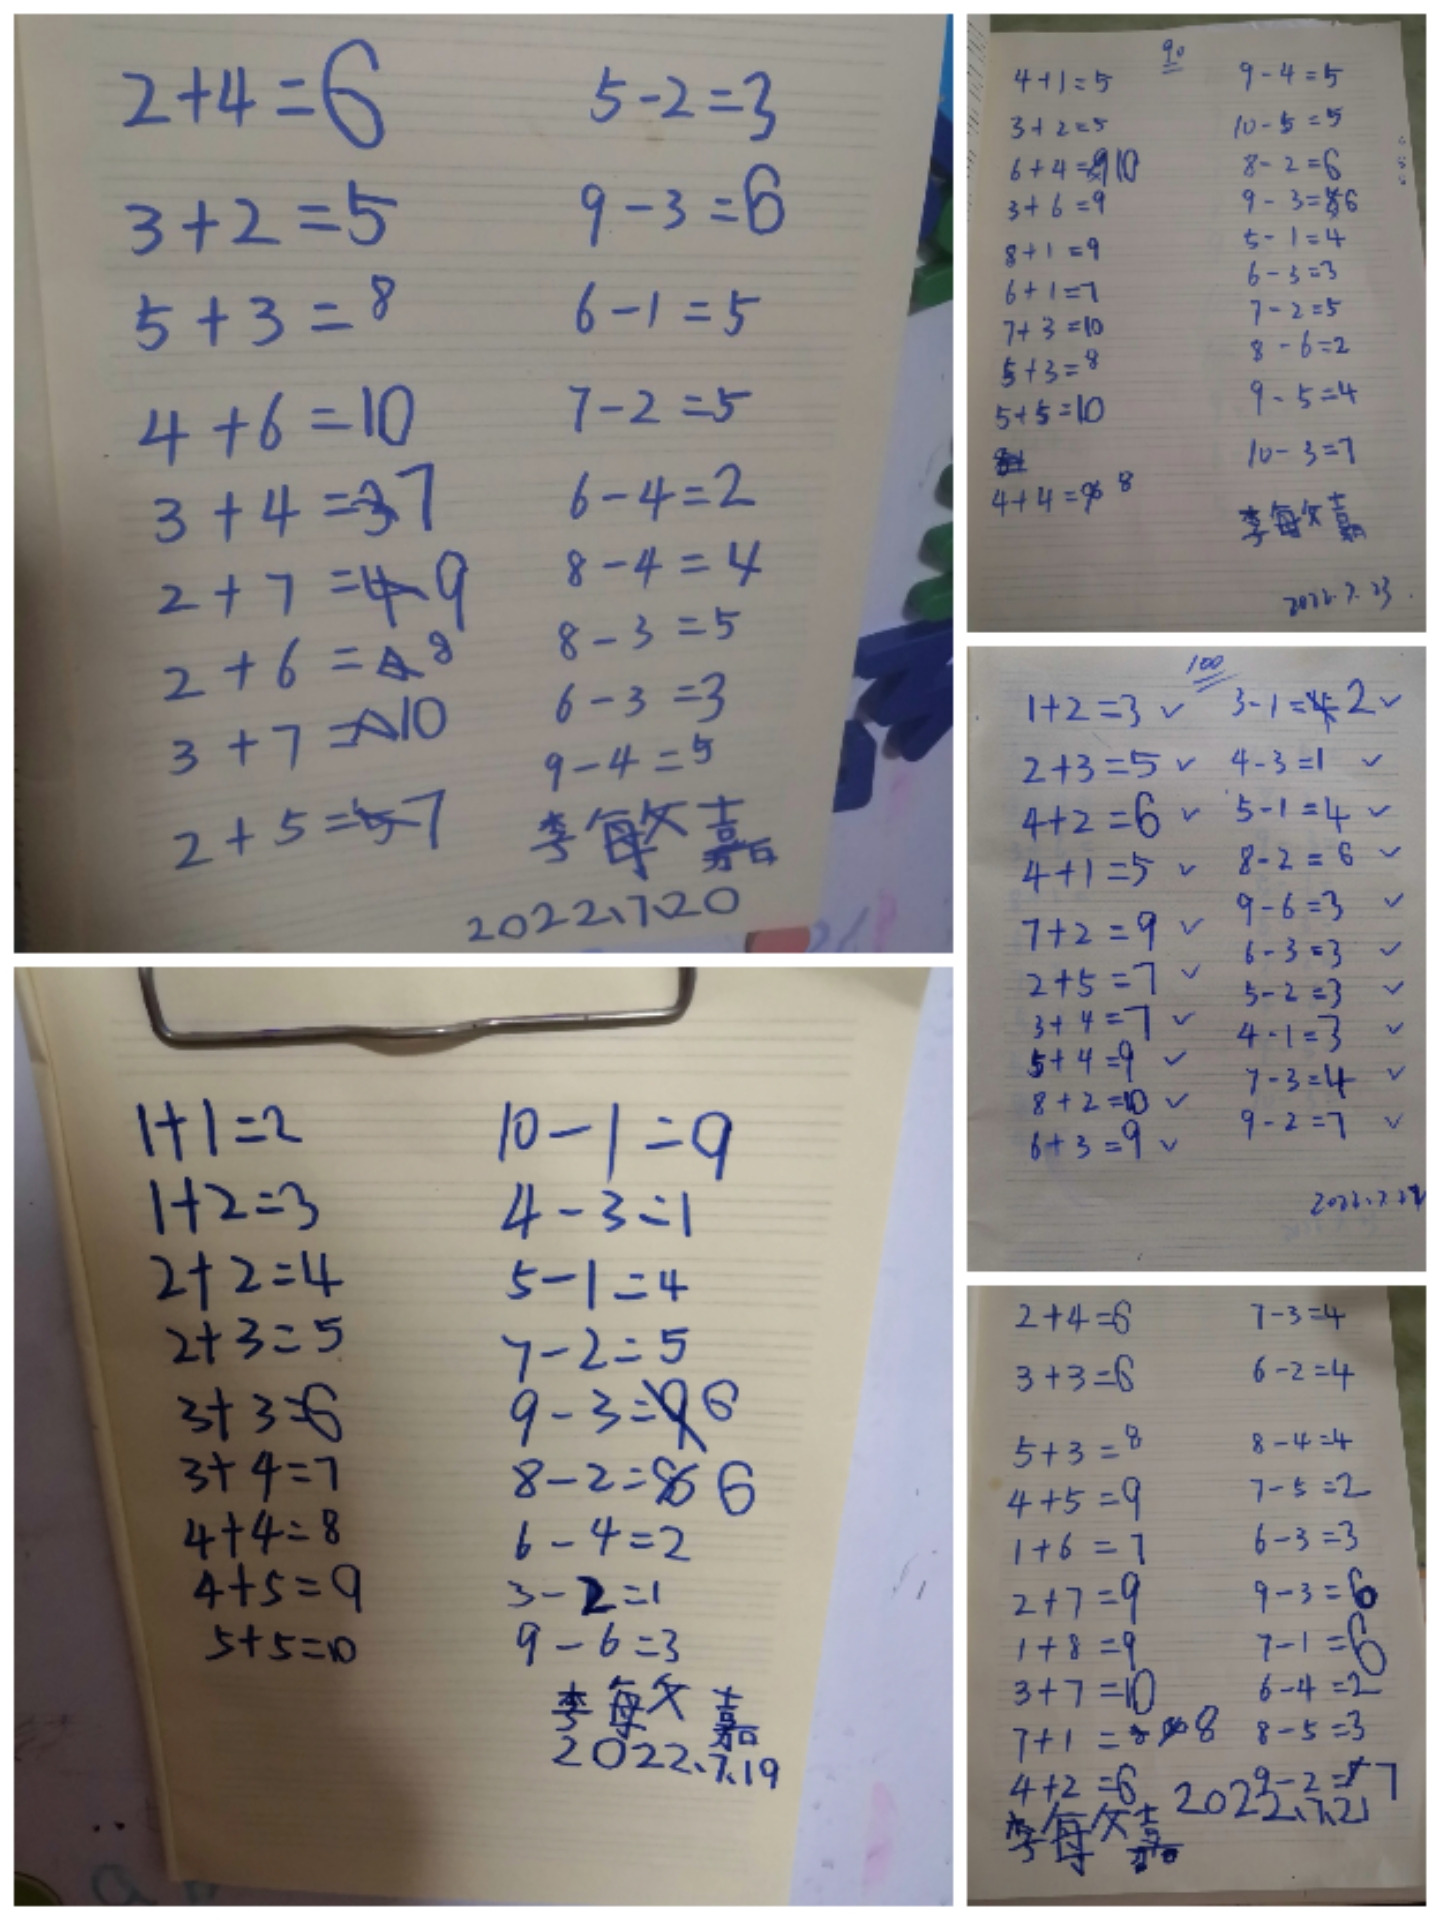 2+4=6 5-2=3
3+2=5 9-3=6
5+3=8 6-1=5
4+6=10 7-2=5
3+4=7 6-4=2
2+7=9 8-4=4
2+6=8 8-3=5
3+7=10 6-3=3
2+5=7 9-4=5
李每文嘉
2022.7.20
1+1=2 10-1=9
1+2=3 4-3=1
2+2=4 5-1=4
2+3=5 7-2=5
3+3=6 9-3=6
3+4=7 8-2=6
4+4=8 6-4=2
4+5=9 3-2=1
5+5=10 9-6=3
李每文嘉
2022.7.19
90
4+1=5 9-4=5
3+2=5 10-5=5
6+4=10 8-2=6
3+6=9 9-3=6
8+1=9 5-1=4
6+1=7 6-3=3
7+3=10 7-2=5
5+3=8 8-6=2
5+5=10 9-5=4
4+4=8 10-3=7
李每文嘉
2022.7.23
100
1+2=3 ✓ 3-1=2 ✓
2+3=5 ✓ 4-3=1 ✓
4+2=6 ✓ 5-1=4 ✓
4+1=5 ✓ 8-2=6 ✓
7+2=9 ✓ 9-6=3 ✓
2+5=7 ✓ 6-3=3 ✓
3+4=7 ✓ 5-2=3 ✓
5+4=9 ✓ 4-1=3 ✓
8+2=10 ✓ 7-3=4 ✓
6+3=9 ✓ 9-2=7 ✓
2+4=6 7-3=4
3+3=6 6-2=4
5+3=8 8-4=4
4+5=9 7-5=2
1+6=7 6-3=3
2+7=9 9-3=6
1+8=9 7-1=6
3+7=10 6-4=2
7+1=8 8-5=3
4+2=6 9-2=7
李每文嘉 2022.7.21